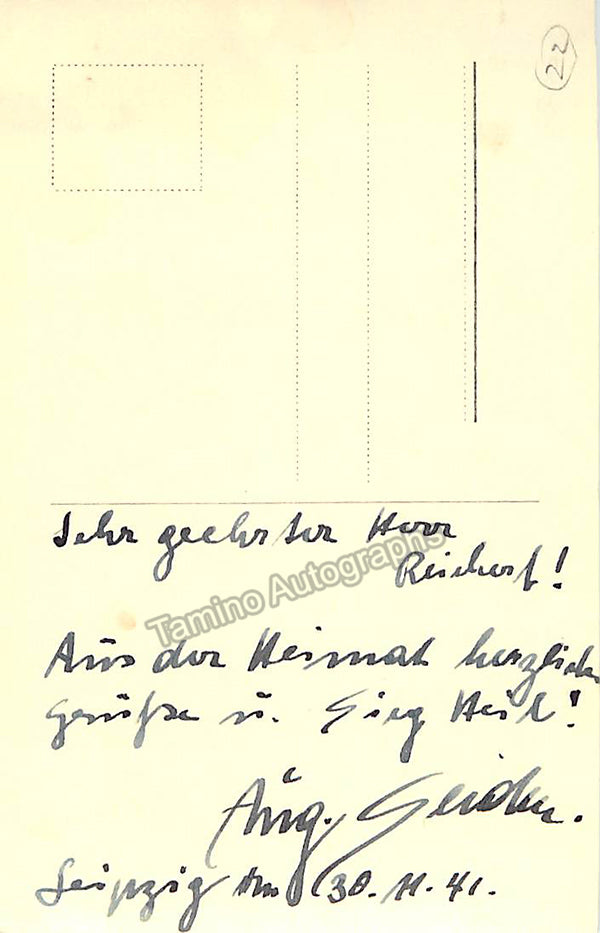 22
Sehr geehrter Herr
Reichert!
Tamino Autographs
Aus der Heimat herzliche
Grüße u. Sieg Heil!
Aug. Seider.
Leipzig am 30.11.41.